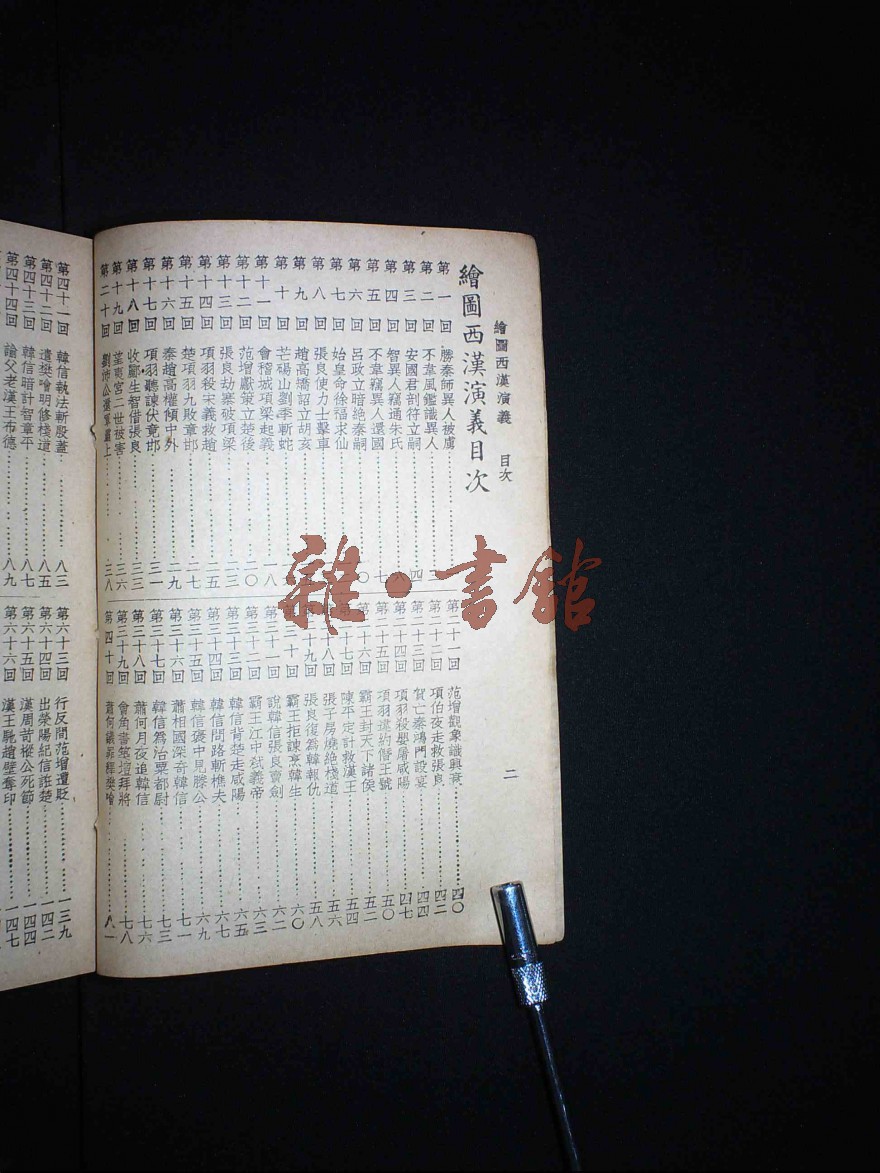 繪圖西漢演義 目次
二
繪圖西漢演義目次
第一回 勝秦師異人被虜
第二回 不韋風鑑識異人 三
第三回 安國君剖符立嗣 四
第四回 智異人竊通朱氏 六
第五回 不韋竊異人還國 七
第六回 呂政立暗絶秦嗣
第七回 始皇命徐福求仙
第八回 張良使力士擊車
第九回 趙高矯詔立胡亥
第十回 芒碭山劉季斬蛇
第十一回 會稽城項梁起義 一八
第十二回 范增獻策立楚後 二〇
第十三回 張良劫寨破項梁 二三
第十四回 項羽殺宋義救趙 二五
第十五回 楚項羽九敗章邯 二七
第十六回 秦趙高權傾中外 二九
第十七回 項羽聽諫伏章邯 三一
第十八回 收酈生智借張良 三三
第十九回 望夷宮二世被害 三六
第二十回 劉沛公還軍霸上 三八
第二十一回 范增觀象識興衰 四〇
第二十二回 項伯夜走救張良 四二
第二十三回 賀亡秦鴻門設宴 四四
第二十四回 項羽殺嬰屠咸陽 四七
第二十五回 項羽違約僭王號 五〇
第二十六回 霸王封天下諸侯 五二
第二十七回 陳平定計救漢王 五四
第二十八回 張子房燒絶棧道 五六
第二十九回 張良復為韓報仇 五八
第三十回 霸王拒諫烹韓生 六〇
第三十一回 說韓信張良賣劍 六二
第三十二回 霸王江中弑義帝 六三
第三十三回 韓信背楚走咸陽 六五
第三十四回 韓信問路斬樵夫 六七
第三十五回 韓信褒中見滕公 六九
第三十六回 蕭相國深奇韓信 七一
第三十七回 韓信為治粟都尉 七三
第三十八回 蕭何月夜追韓信 七六
第三十九回 會角書築壇拜將 七八
第四十回 蕭何議罪釋樊噲 八一
第四十一回 韓信執法斬殷蓋 八三
第四十二回 遣樊噲明修棧道 八五
第四十三回 韓信暗計智章平 八七
第四十四回 諭父老漢王布德 八九
第六十三回 行反間范增遭貶 一三九
第六十四回 出榮陽紀信誑楚 一四二
第六十五回 漢周苛樅公死節 一四四
第六十六回 漢王馳趙壁奪印 一四七
雜·書館